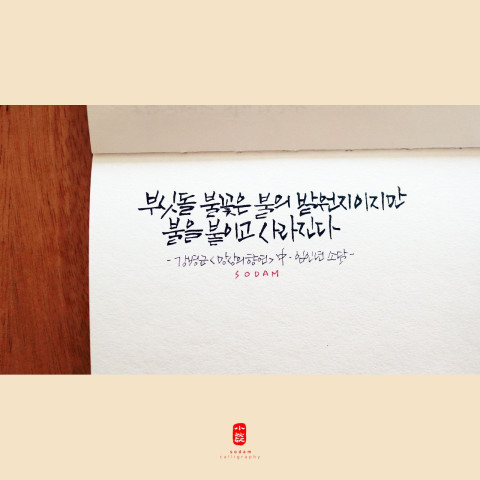 부싯돌 불꽃은 불의 발원지이지만
불을 붙이고 사라진다
-강영은 <망상의 향연> 中 · 임인년 소담-
SODAM
sodam
calligraphy